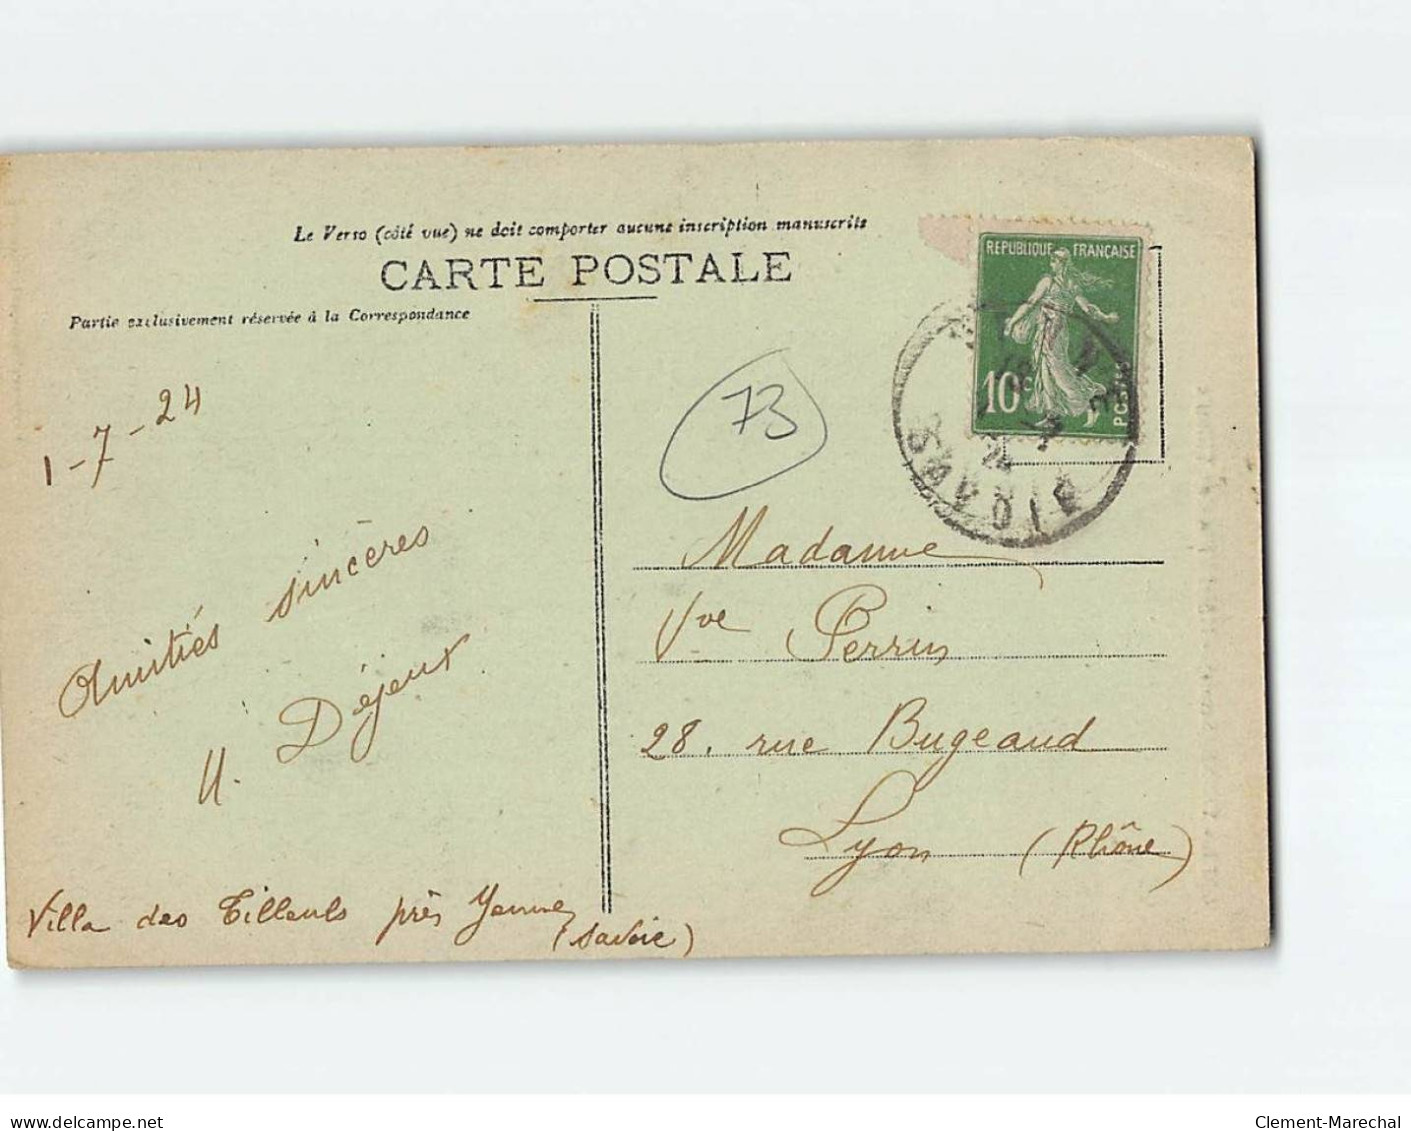 Le Verso (côté vue) ne doit comporter aucune inscription manuscrite
CARTE POSTALE
Partie exclusivement réservée à la Correspondance
REPUBLIQUE FRANÇAISE
10c
POSTES
24
SAVOIE
73
1-7-24
Amitiés sincères
Déjeux
Villa des Tilleuls près Yenne
(Savoie)
Madame
Vve Perrin
28. rue Bugeaud
Lyon (Rhône)
www.delcampe.net
Clement-Marechal